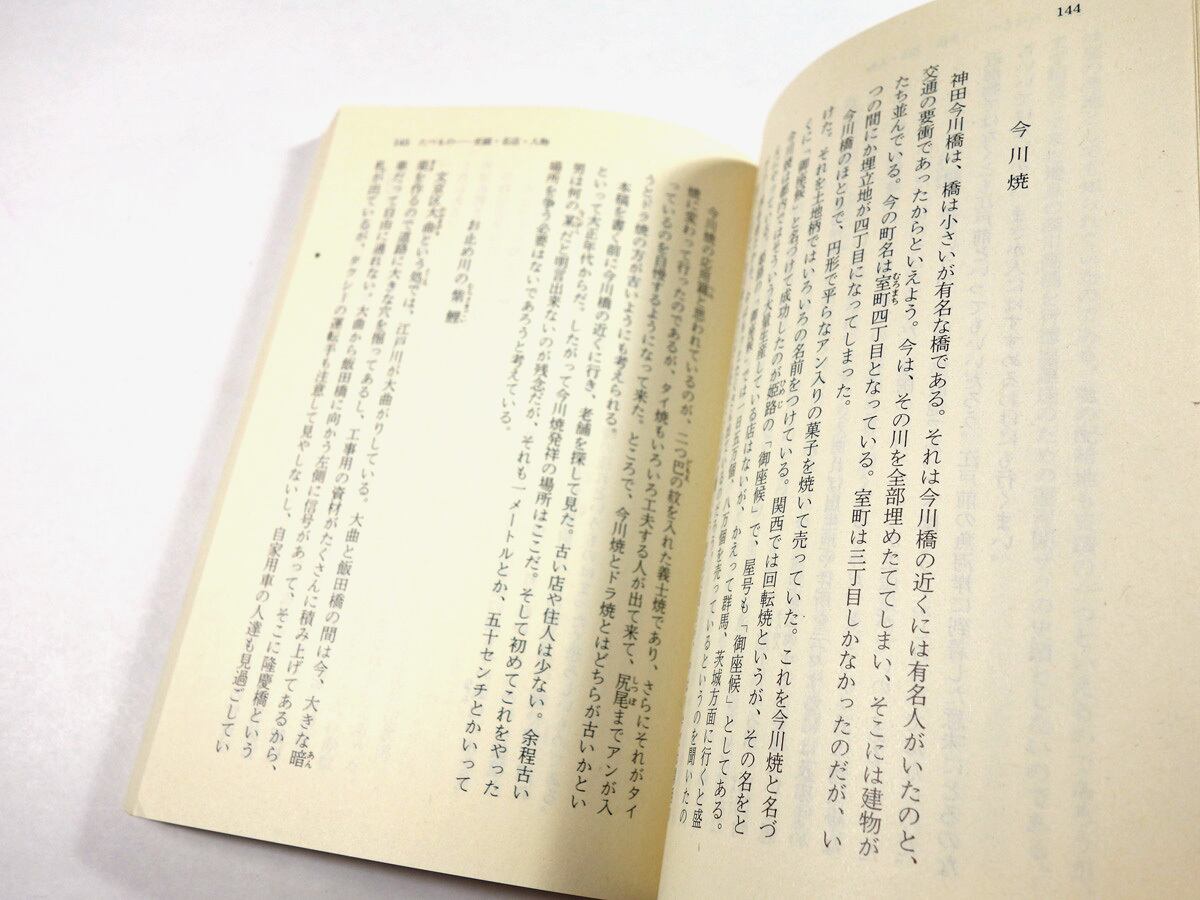 144
今川焼
神田今川橋は、橋は小さいが有名な橋である。それは今川橋の近くには有名人がいたのと、
交通の要衝であったからといえよう。今は、その川を全部埋めたててしまい、そこには建物が
たち並んでいる。今の町名は室町四丁目となっている。室町は三丁目しかなかったのだが、い
むろまち
つの間にか埋立地が四丁目になってしまった。
今川橋のほとりで、円形で平らなアン入りの菓子を焼いて売っていた。これを今川焼と名づ
けた。それを土地柄ではいろいろの名前をつけている。関西では回転焼というが、その名をと
くに「御座候」と名づけて成功したのが姫路の「御座候」で、屋号も「御座候」としてある。
ひめじ
今川焼は都内ではそういう大量生産している店はないが、かえって群馬、茨城方面に行くと盛
一日五万個、八万個を売っているというのを聞いたの
145 たべもの
今川焼の応用篇と思われているのが、二つ巴の紋を入れた義士焼であり、さらにそれがタイ
ともえ
焼に変わって行ったのであるが、タイ焼もいろいろ工夫する人が出て来て、尻尾までアンが入
しっぽ
っているのを自慢するようになって来た。ところで、今川焼とドラ焼とはどちらが古いかとい
うとドラ焼の方が古いようにも考えられる。
本稿を書く前に今川橋の近くに行き、老舗を探して見た。古い店や住人は少ない。余程古い
といって大正年代からだ。したがって今川焼発祥の場所はここだ。そして初めてこれをやった
男は何の某だと明言出来ないのが残念だが、それも一メートルとか、五十センチとかいって
場所を争う必要はないであろうと考えている。
お止め川の紫鯉
文京区大曲という処では、江戸川が大曲がりしている。大曲と飯田橋の間は今、大きな暗
あん
渠を作るので道路に大きな穴を掘ってあるし、工事用の資材がたくさんに積み上げてあるから、
車だって自由に通れない。大曲から飯田橋に向かう左側に信号があって、そこに隆慶橋という
札が出ているが、タクシーの運転手も注意して見やしないし、自家用車の人達も見過ごしてい